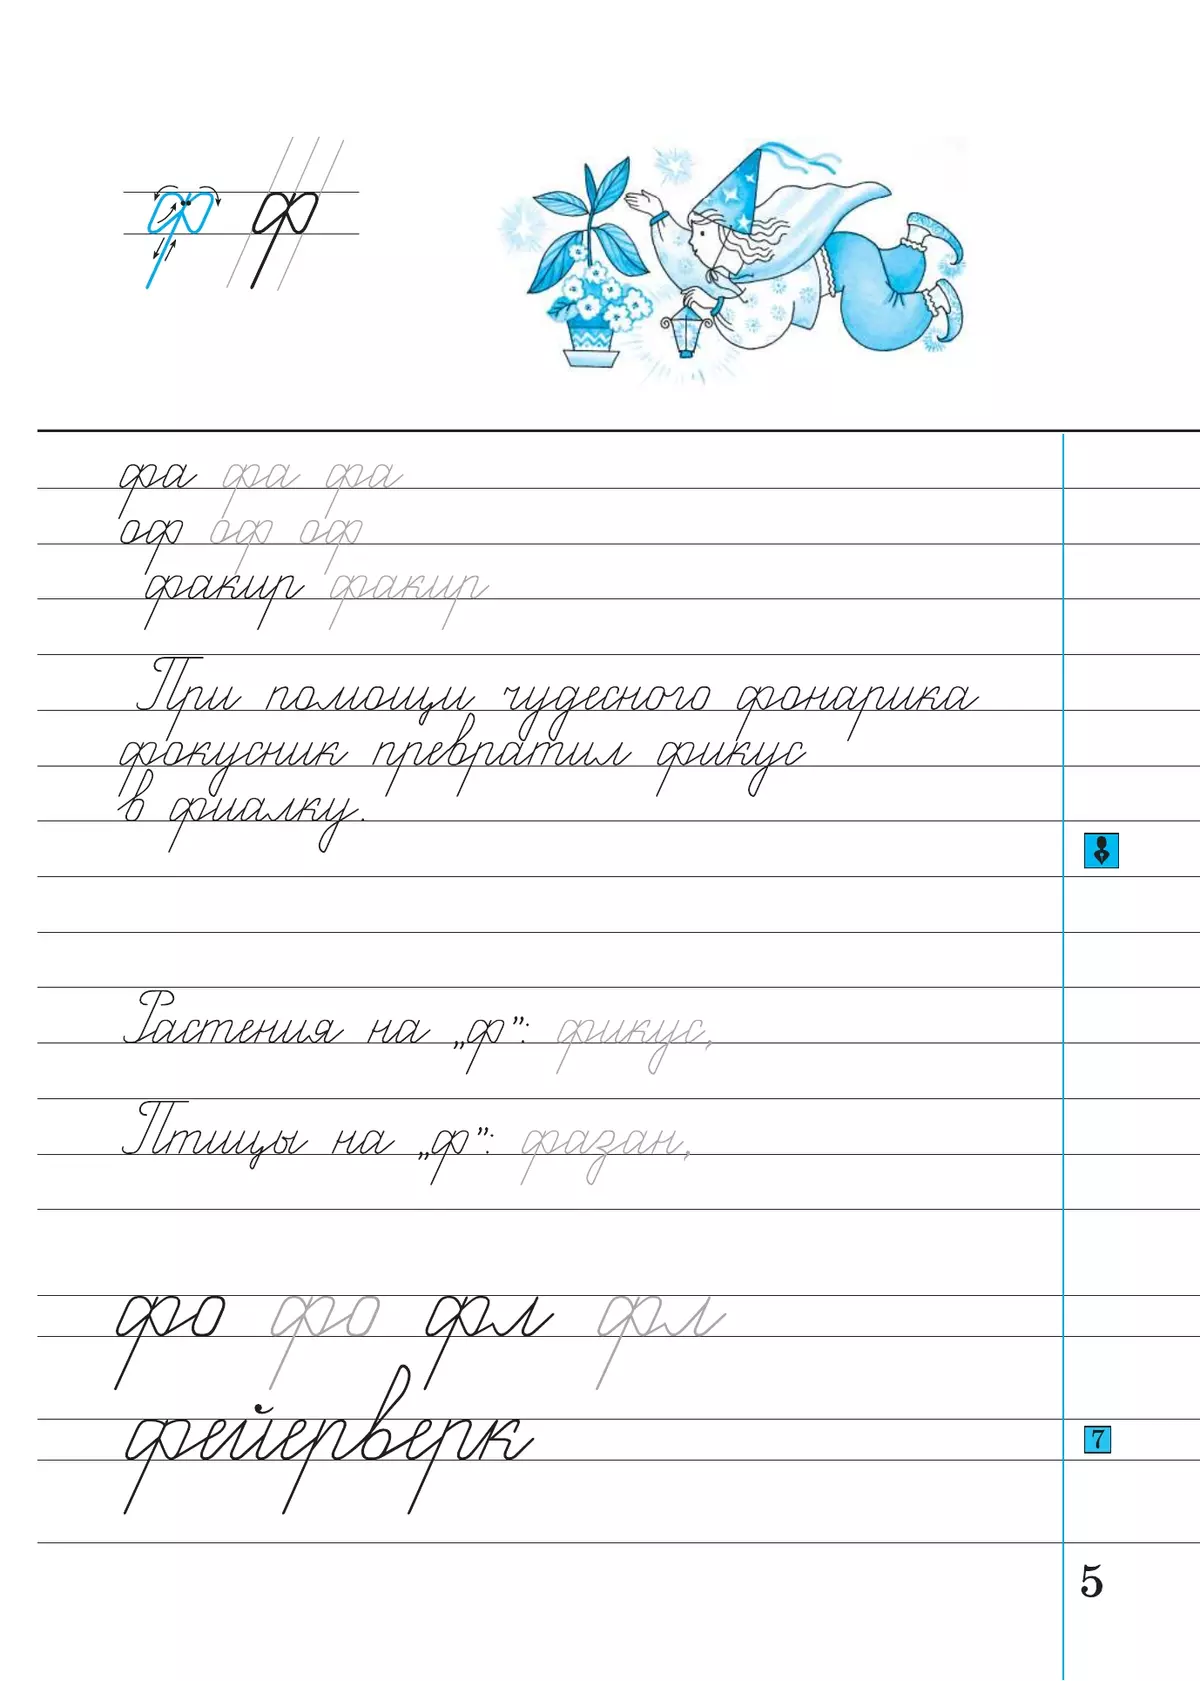 ф ф
фа фа фа
оф оф оф
факир факир
При помощи чудесного фонарика
фокусник превратил фикус
в фиалку.
Растения на „ф”: фикус,
Птицы на „ф”: фазан,
фо фо фл фл
фейерверк
7
5